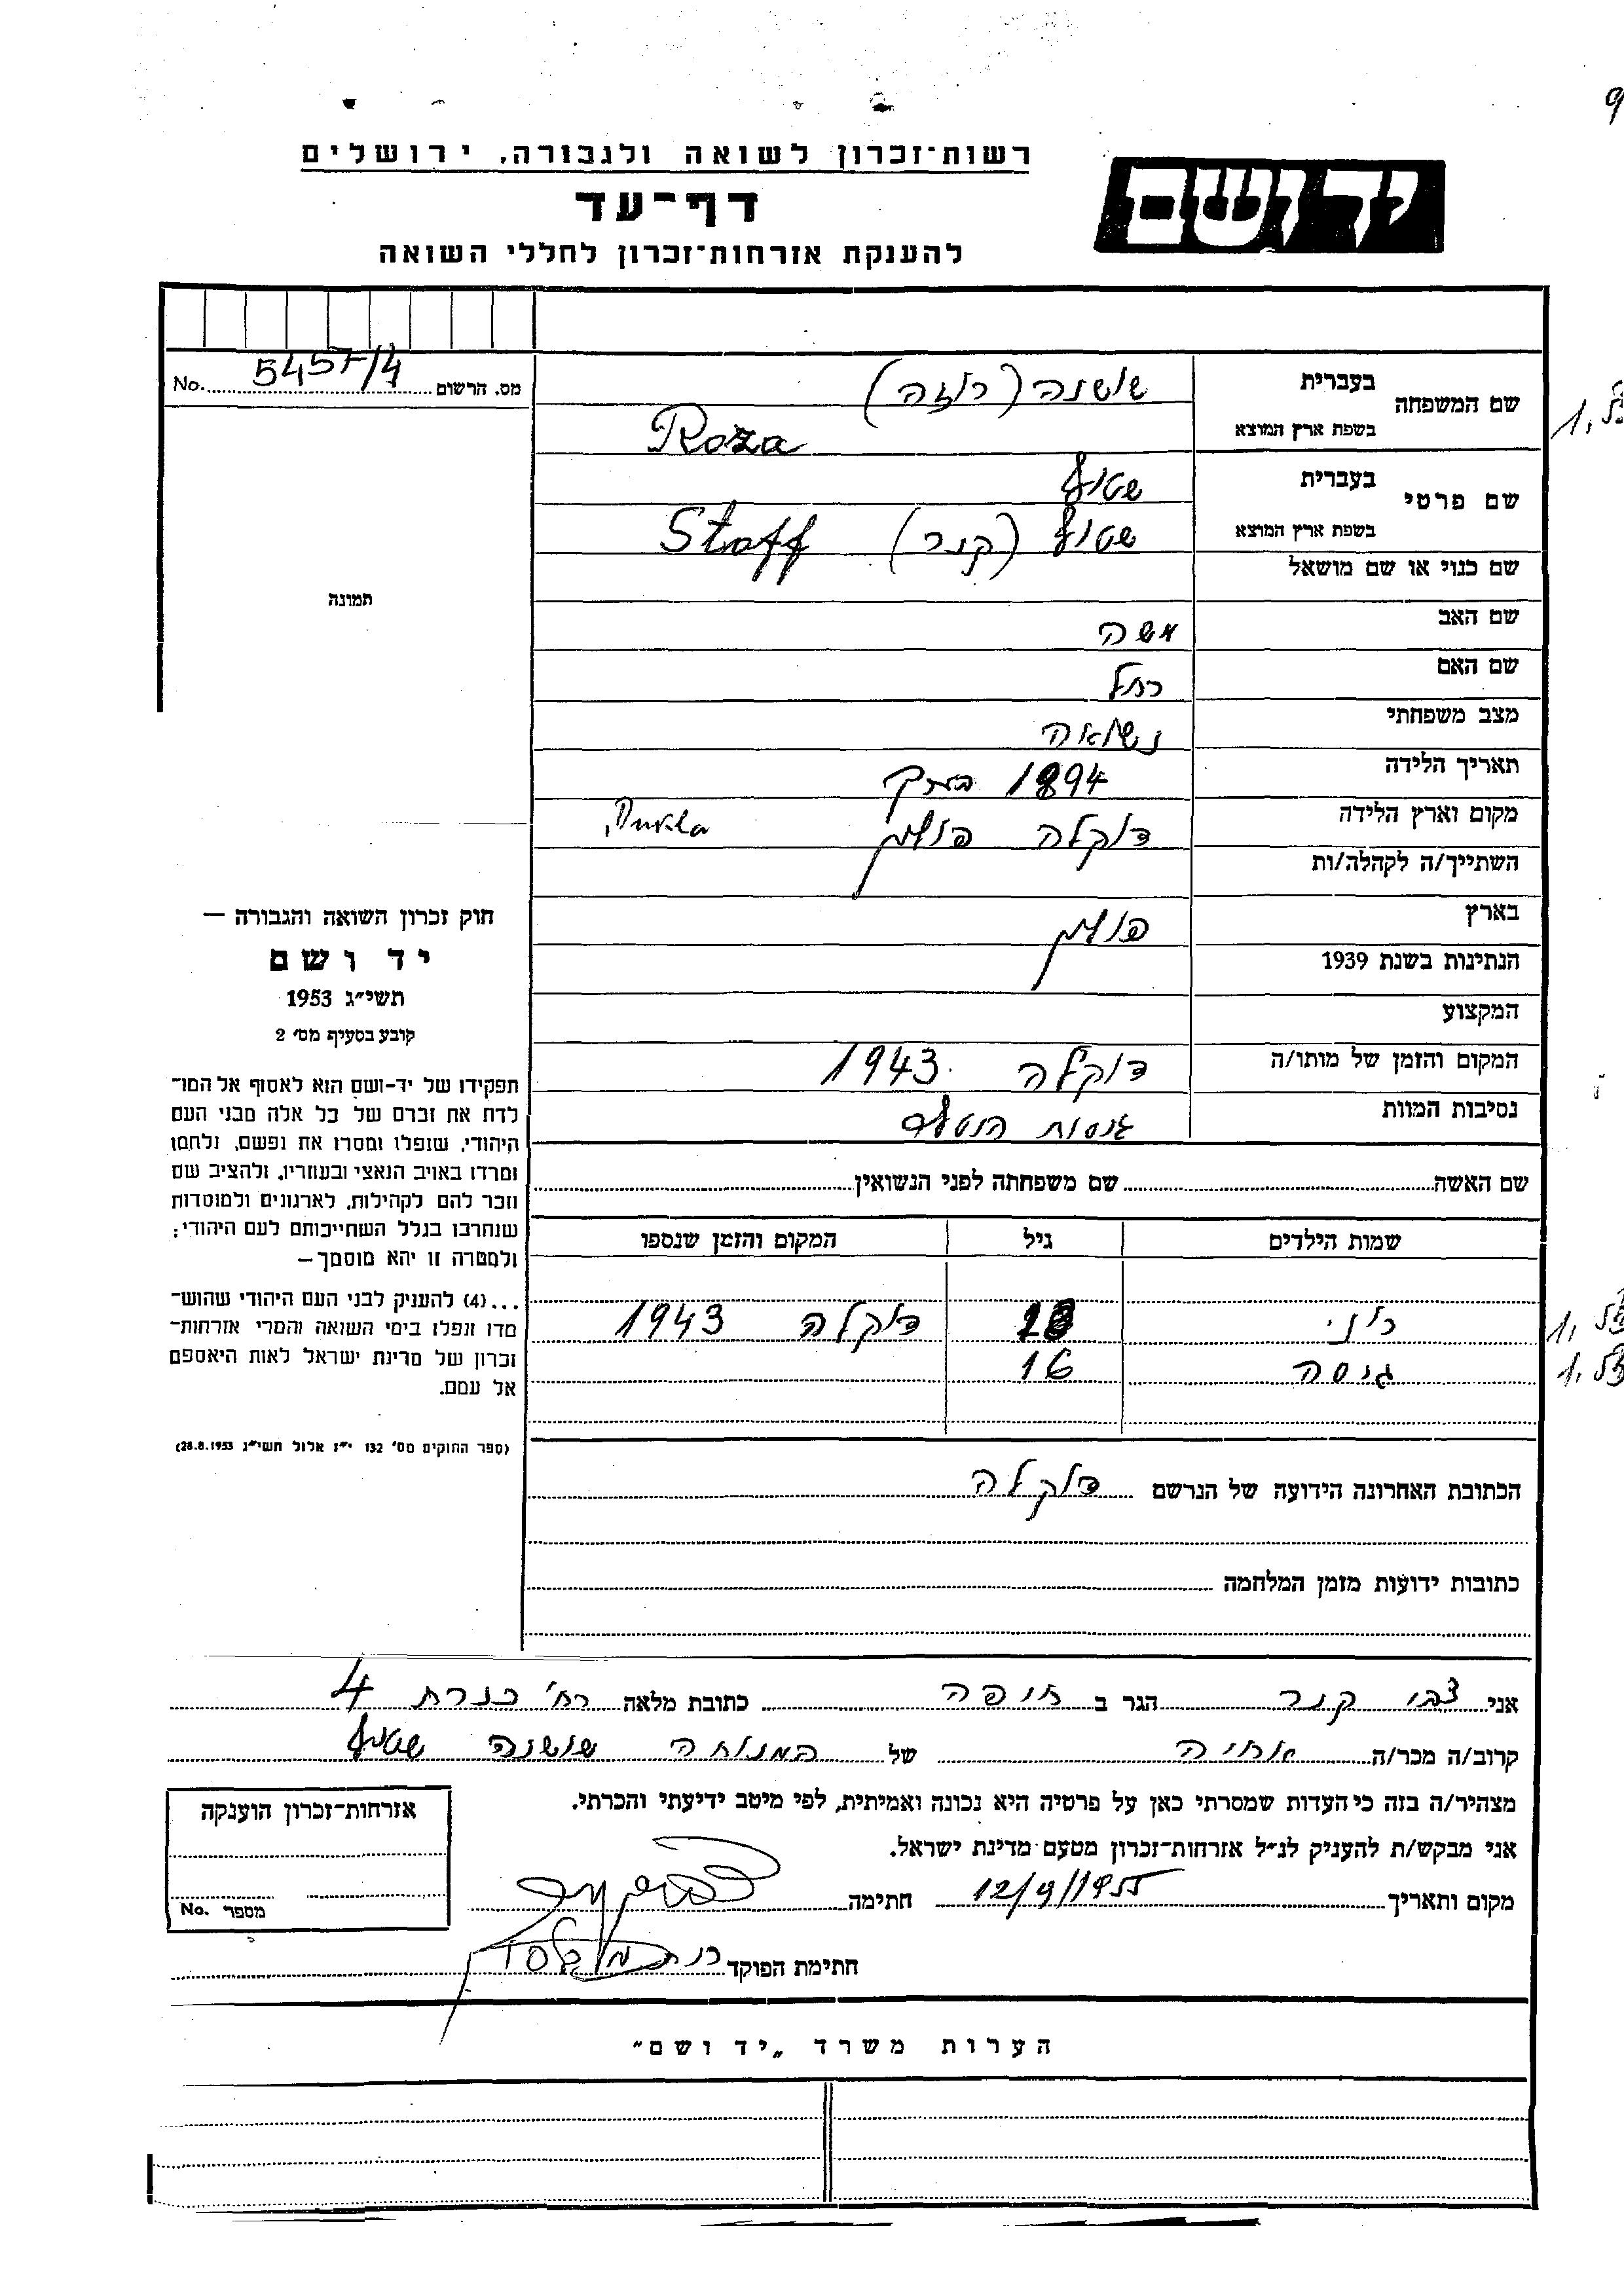 רשות־זכרון לשואה ולגבורה, ירושלים
יד ושם
דף־עד
להענקת אזרחות־זכרון לחללי השואה
מס. הרשום 5457/4 No.
שם המשפחה
בעברית שושנה (רוזה)
בשפת ארץ המוצא Roza
שם פרטי
בעברית שטוף
בשפת ארץ המוצא שטוף (קנר) Stoff
שם כנוי או שם מושאל
שם האב משה
שם האם רחל
מצב משפחתי נשואה
תאריך הלידה 1894 בערך
מקום וארץ הלידה דוקלה פולין Dukla
השתייך/ה לקהלה/ות
בארץ פולין
הנתינות בשנת 1939
המקצוע
המקום והזמן של מותו/ה דוקלה 1943
נסיבות המוות
שם האשה
שם משפחתה לפני הנשואין
שמות הילדים גיל המקום והזמן שנספו
רוני דוקלה 1943
גיסה 16
הכתובת האחרונה הידועה של הנרשם דוקלה
כתובות ידועות מזמן המלחמה
תמונה
חוק זכרון השואה והגבורה —
יד ושם
תשי״ג 1953
קובע בסעיף מס׳ 2
תפקידו של יד-ושם הוא לאסוף אל המו־
לדת את זכרם של כל אלה מבני העם
היהודי, שנפלו ומסרו את נפשם, נלחמו
ומרדו באויב הנאצי ובעוזריו, ולהציב שם
וזכר להם לקהילות, לארגונים ולמוסדות
שנחרבו בגלל השתייכותם לעם היהודי;
ולמטרה זו יהא מוסמך—
...(4) להעניק לבני העם היהודי שהוש־
מדו ונפלו בימי השואה והמרי אזרחות־
זכרון של מדינת ישראל לאות היאספם
אל עמם.
(ספר החוקים מס׳ 132 י״ז אלול תשי״ג 28.8.1953)
אני צבי קנר הגר ב חיפה כתובת מלאה רח׳ כנרת 4
קרוב/ה מכר/ה אחיה של המנוחה שושנה שטוף
מצהיר/ה בזה כי העדות שמסרתי כאן על פרטיה היא נכונה ואמיתית, לפי מיטב ידיעתי והכרתי.
אני מבקש/ת להעניק לנ״ל אזרחות־זכרון מטעם מדינת ישראל.
מקום ותאריך 12/9/1955 חתימה
חתימת הפוקד
אזרחות־זכרון הוענקה
מספר No.
הערות משרד „יד ושם״